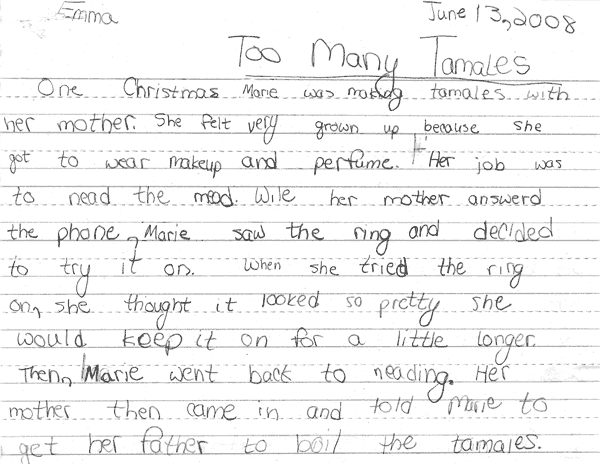 Emma
June 13, 2008
Too Many Tamales
One Christmas Marie was making tamales with
her mother. She felt very grown up because she
got to wear makeup and perfume. Her job was
to nead the mead. Wile her mother answerd
the phone, Marie saw the ring and decided
to try it on. When she tried the ring
on, she thought it looked so pretty she
would keep it on for a little longer.
Then, Marie went back to neading. Her
mother then came in and told Marie to
get her father to boil the tamales.